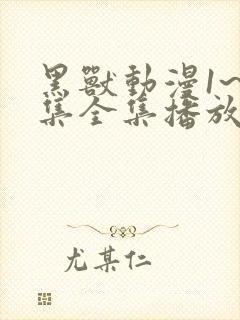 黑獸動漫1~
集全集播放
尤某仁